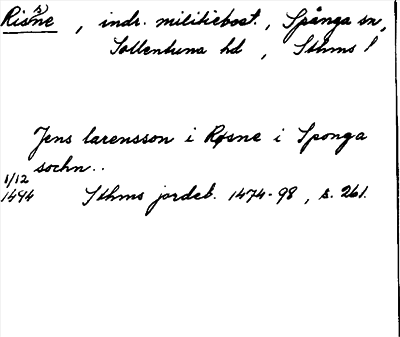 Risne , indr. militiebost. , Spånga sn,
Sollentuna hd , Sthms l
Jens larensson i Røsne i Sponga
sochn..
1/12
1494 Sthms jordeb. 1474-98, s. 261.